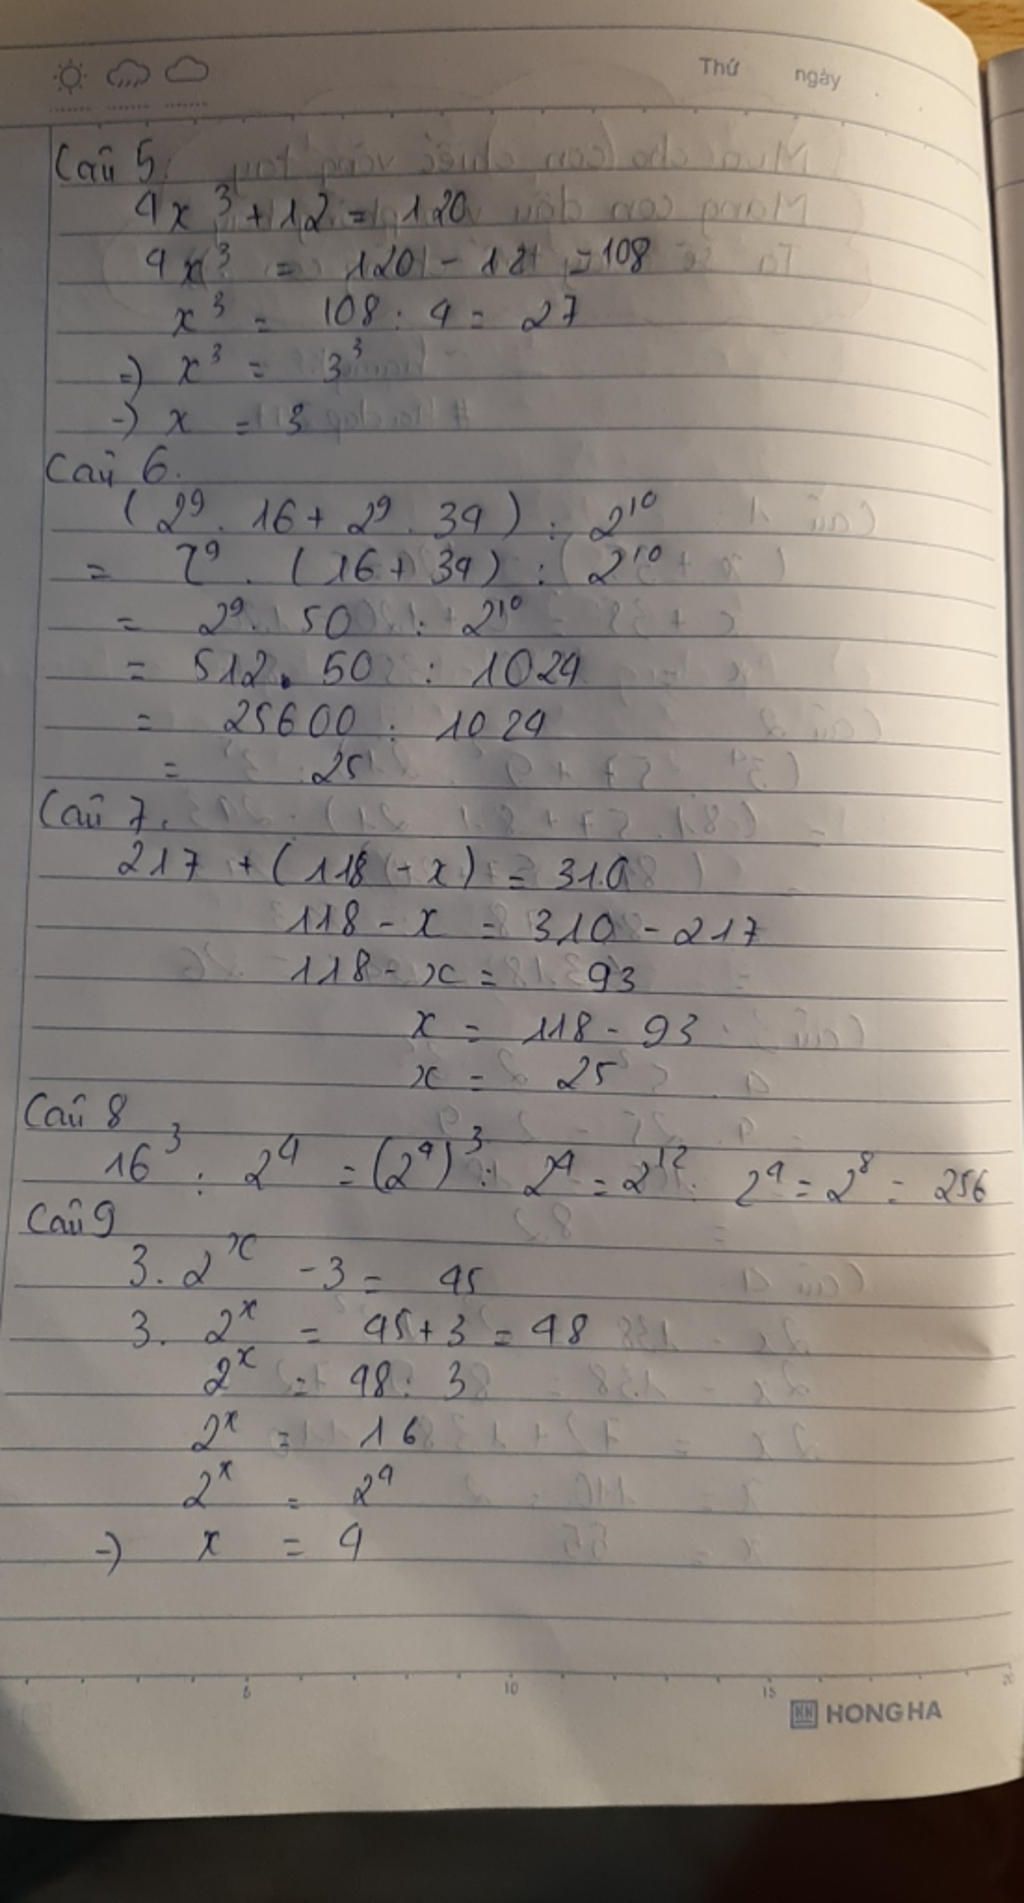 Thứ ngày
Câu 5.
4x³ + 12 = 120
4x³ = 120 - 12 = 108
x³ = 108 : 4 = 27
=) x³ = 3³
=) x = 3
Câu 6.
(2⁹ . 16 + 2⁹ . 34) : 2¹⁰
= 2⁹ . (16 + 34) : 2¹⁰
= 2⁹ . 50 : 2¹⁰
= 512 . 50 : 1024
= 25600 : 1024
= 25
Câu 7.
217 + (118 - x) = 310
118 - x = 310 - 217
118 - x = 93
x = 118 - 93
x = 25
Câu 8
16³ : 2⁴ = (2⁴)³ : 2⁴ = 2¹² : 2⁴ = 2⁸ = 256
Câu 9
3 . 2ˣ - 3 = 45
3 . 2ˣ = 45 + 3 = 48
2ˣ = 48 : 3
2ˣ = 16
2ˣ = 2⁴
=) x = 4
5 10 15 20
HONG HA